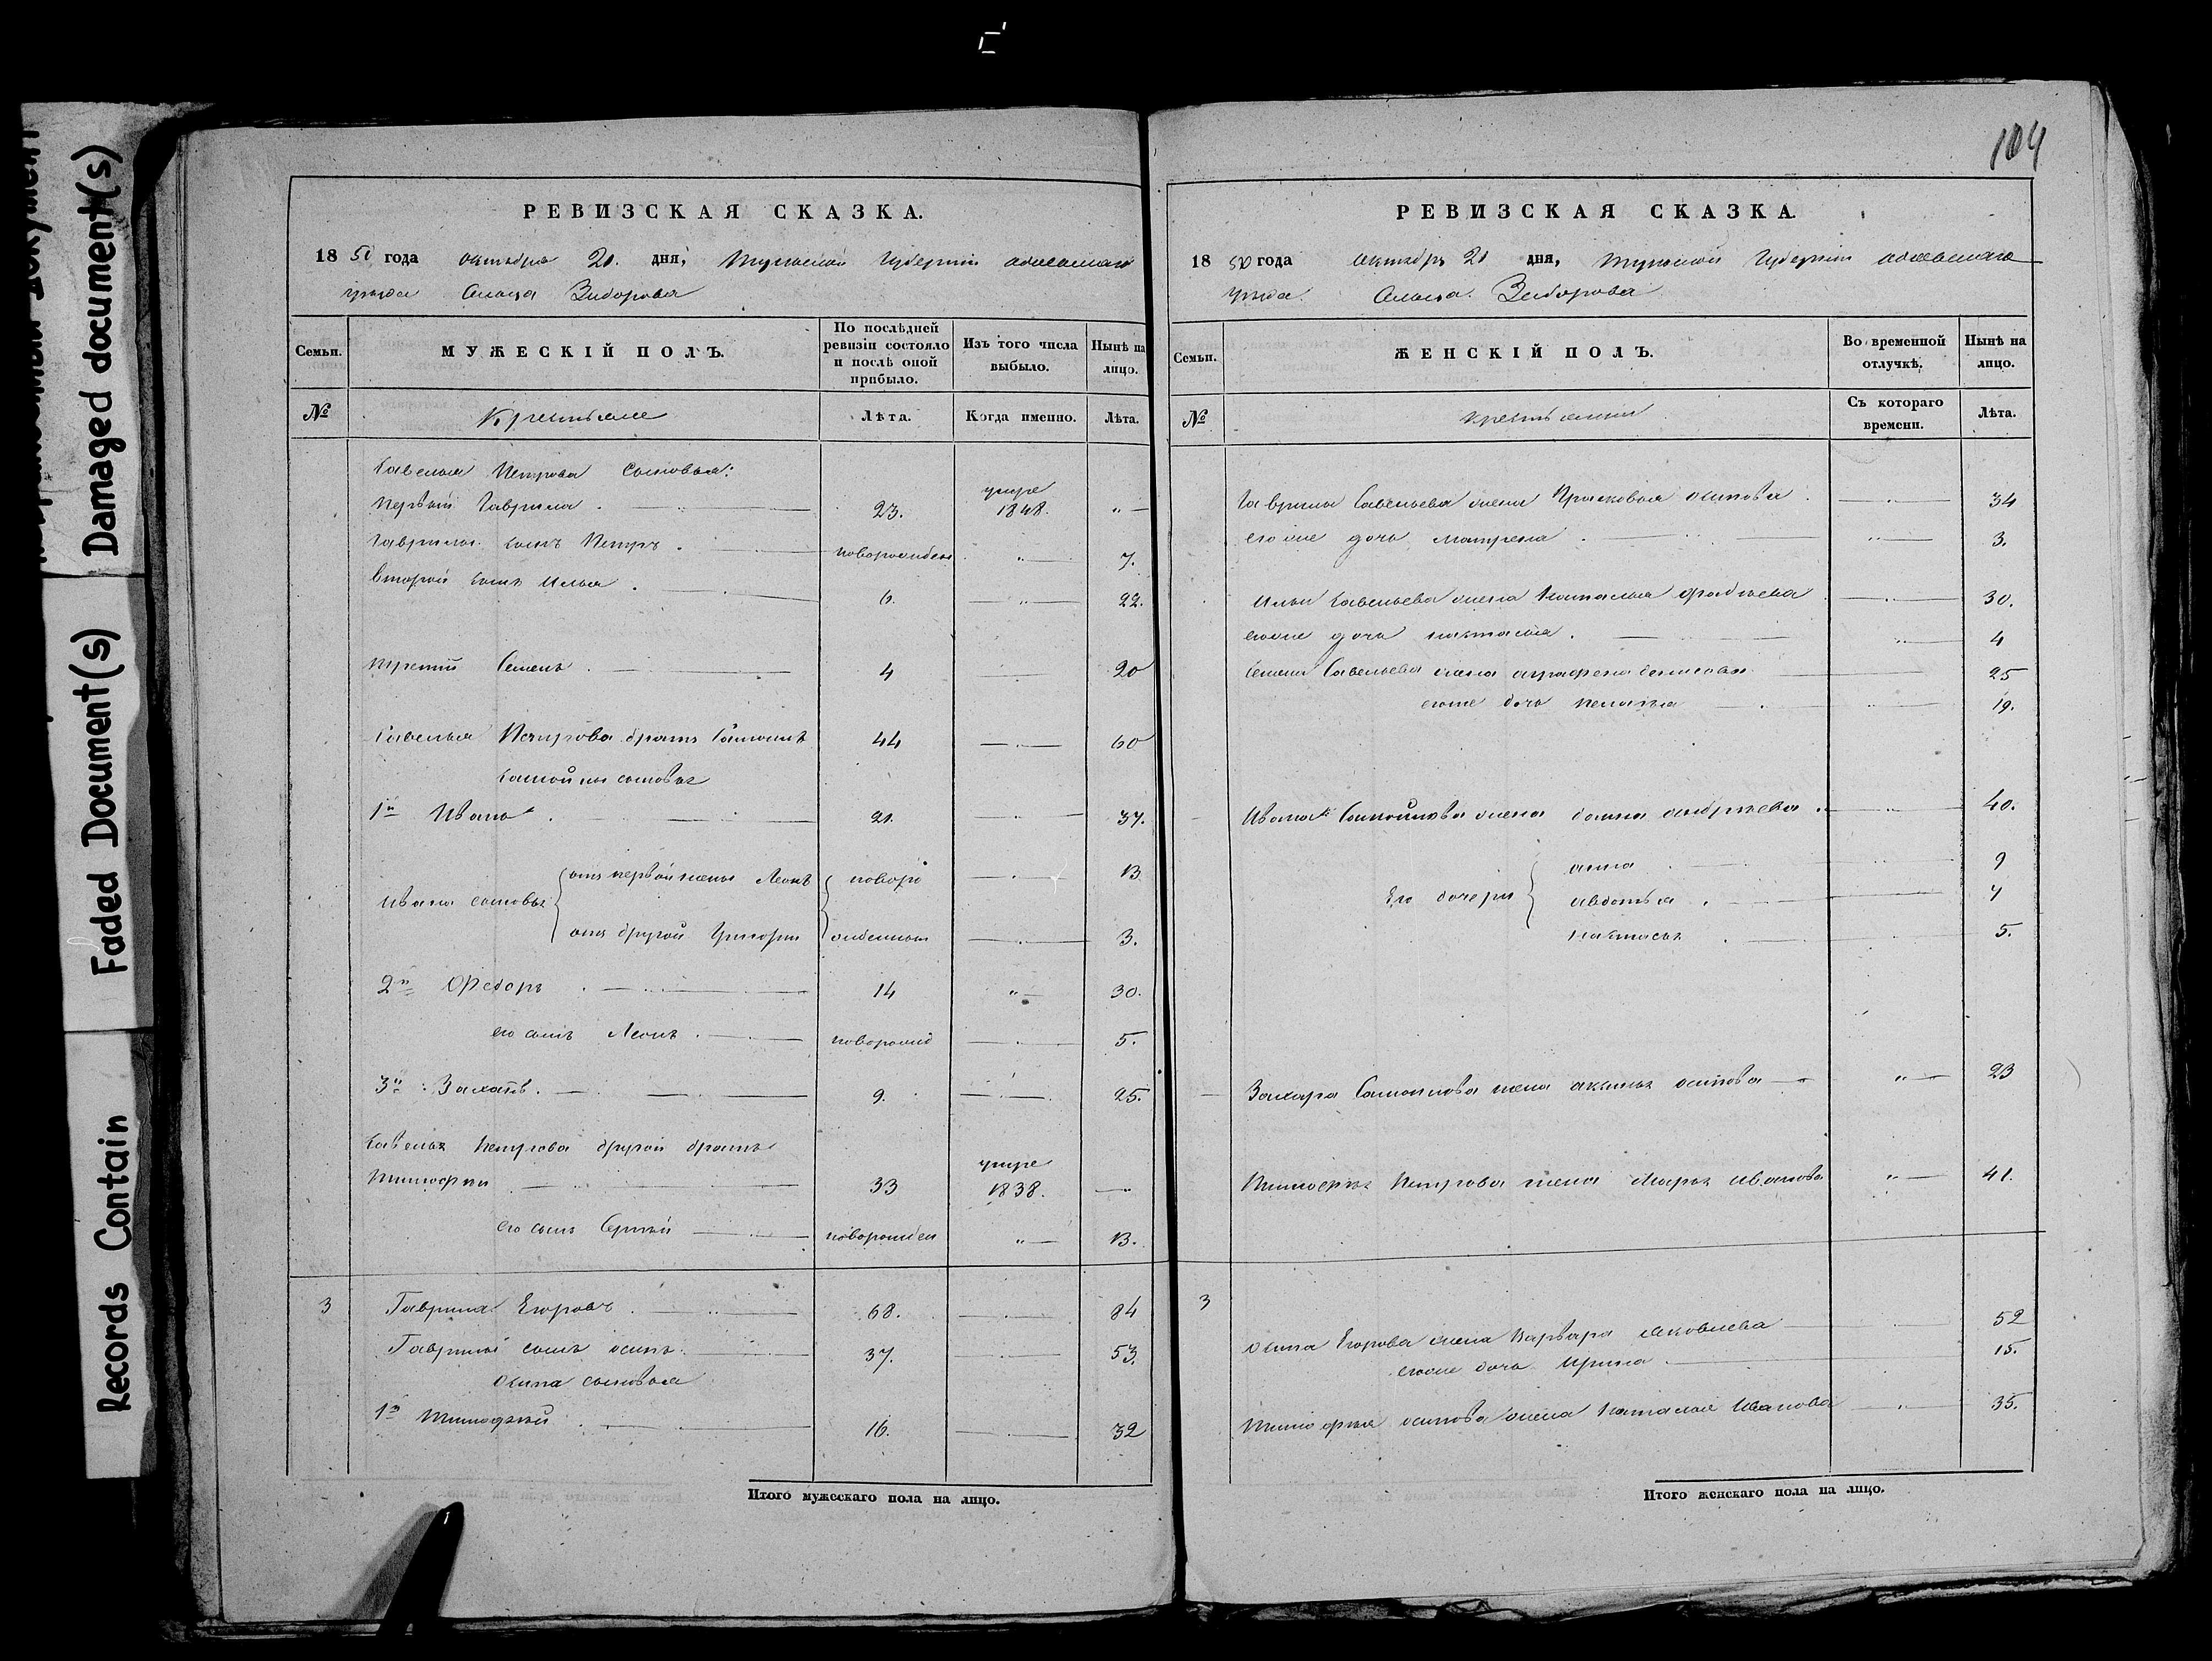 104
Records Contain Faded Document(s) Damaged document(s)
РЕВИЗСКАЯ СКАЗКА.
1850 года октября 21. дня, Тульской Губернии
уезда Сельца Зиборова
Семьи.
МУЖЕСКІЙ ПОЛЪ.
По послѣдней ревизіи состояло и послѣ оной прибыло.
Изъ того числа выбыло.
Нынѣ на лицо.
№ Крестьяне Лѣта. Когда именно. Лѣта.
Савелья Петрова сыновья:
первый Гаврила 23. умре 1848. "
Гаврилы сынъ Петръ новорожден " 7.
второй сынъ Илья 6. " 22.
третій Семенъ 4 20
Савелья Петрова братъ Самойлъ 44 60
Самойлы сыновья
1й Иванъ 21. 37.
Ивана сыновья
отъ первой жены Леонъ новоро 13
отъ другой Григорій жденныя 3.
2й Федоръ 14 " 30.
его сынъ Леонъ новорожд 5.
3й Захаръ 9. 25.
Савелья Петрова другой братъ
Тимофей 33 умре 1838.
его сынъ Сергѣй новорожден " 13.
3 Гаврила Егоровъ 68. 84
Гаврилы сынъ осипъ 37. 53.
Осипа сыновья
1й Тимофѣй 16. 32
Итого мужескаго пола на лицо.
РЕВИЗСКАЯ СКАЗКА.
1850 года октября 21 дня, Тульской Губернии
уезда Сельца Зиборова
Семьи.
ЖЕНСКІЙ ПОЛЪ.
Во временной отлучкѣ.
Нынѣ на лицо.
№ крестьянки Съ котораго времени. Лѣта.
Гаврилы Савельева жена Прасковья осипова 34
его же дочь матрена " 3.
Ильи Савельева жена Наталья 30.
его же дочь настасья " 4
Семена Савельева жена аграфена денисова 25
его же дочь пелагея 19.
Ивана Самойлова жена домна андрѣева 40.
Его дочери
анна 9
авдотья 7
настасья 5.
Захара Самойлова жена аксинья осипова " 23
Тимофея Петрова жена Марья иванова " 41.
3
осипа Егорова жена Варвара яковлева 52
его же дочь Ирина 15.
Тимофея осипова жена Наталья Иванова 35.
Итого женскаго пола на лицо.